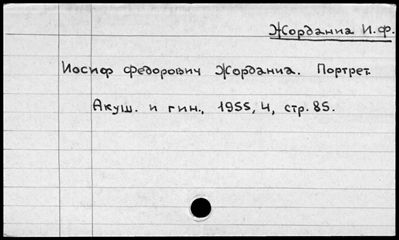 Жордания И.Ф.
Иосиф Федорович Жордания. Портрет.
Акуш. и гин., 1955, 4, стр. 85.